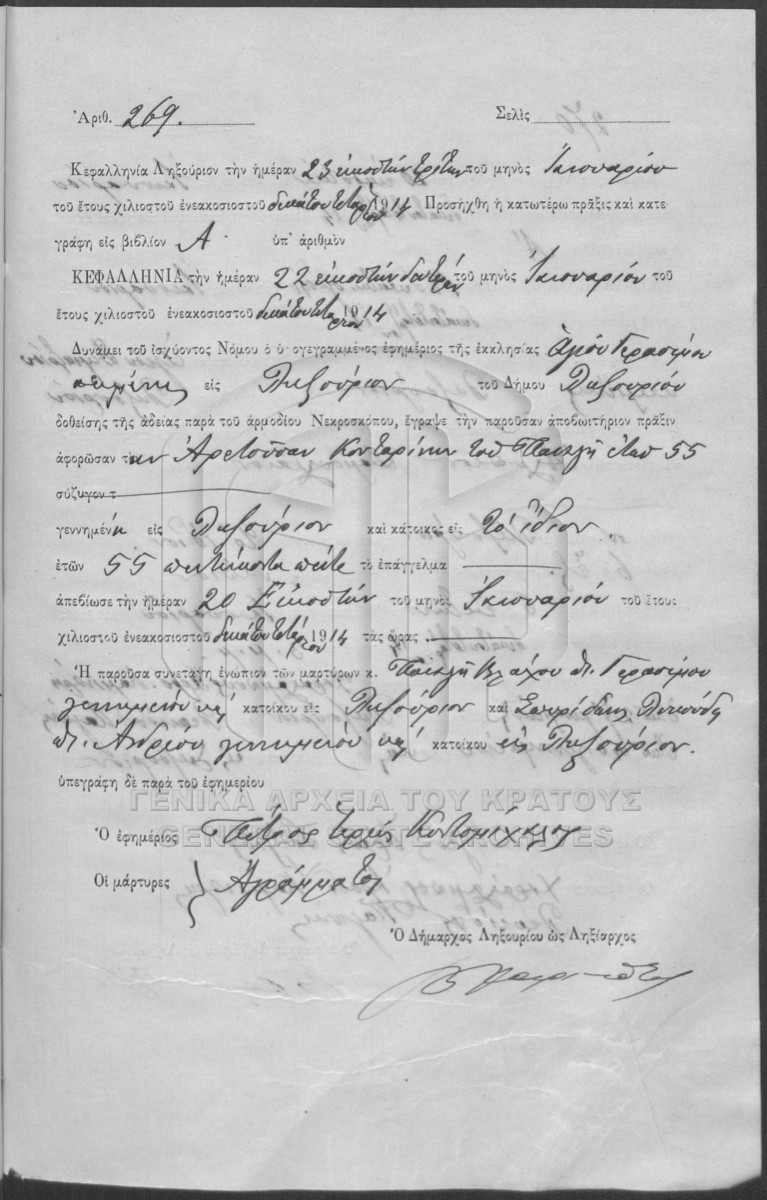 Ἀριθ. 269. Σελὶς
Κεφαλληνία Ληξούριον τὴν ἡμέραν 23 εἰκοστὴν τρίτην τοῦ μηνὸς Ἰανουαρίου
τοῦ ἔτους χιλιοστοῦ ἐνεακοσιοστοῦ δεκάτου τετάρτου 1914 Προσήχθη ἡ κατωτέρω πρᾶξις καὶ κατε-
γράφη εἰς βιβλίον Α ὑπ' ἀριθμὸν
ΚΕΦΑΛΛΗΝΙΑ τὴν ἡμέραν 22 εἰκοστὴν δευτέραν τοῦ μηνὸς Ἰανουαρίου τοῦ
ἔτους χιλιοστοῦ ἐνεακοσιοστοῦ δεκάτου τετάρτου 1914
Δυνάμει τοῦ ἰσχύοντος Νόμου ὁ ὑπογεγραμμένος ἐφημέριος τῆς ἐκκλησίας Ἁγίου Γερασίμου
κειμένης εἰς Ληξούριον τοῦ Δήμου Ληξουρίου
δοθείσης τῆς ἀδείας παρὰ τοῦ ἁρμοδίου Νεκροσκόπου, ἔγραψε τὴν παροῦσαν ἀποβωιτήριον πρᾶξιν
ἀφορῶσαν τὴν Ἀρετοῦσαν Κονταρίνην τοῦ Παυλῆ ἐτῶν 55
σύζυγον τ
γεννημένη εἰς Ληξούριον καὶ κάτοικος εἰς τὸ ἴδιον
ἐτῶν 55 πεντήκοντα πέντε τὸ ἐπάγγελμα
ἀπεβίωσε τὴν ἡμέραν 20 Εἰκοστὴν τοῦ μηνὸς Ἰανουαρίου τοῦ ἔτους
χιλιοστοῦ ἐνεακοσιοστοῦ δεκάτου τετάρτου 1914 τὰς ὥρας
Ἡ παροῦσα συνετάγη ἐνώπιον τῶν μαρτύρων κ. Παυλῆ Βλάχου π. Γερασίμου
γεννημένου καὶ κατοίκου εἰς Ληξούριον καὶ Σπυρίδωνος
π. Ἀνδρέου γεννημένου καὶ κατοίκου εἰς Ληξούριον.
ὑπεγράφη δὲ παρὰ τοῦ ἐφημερίου
ΓΕΝΙΚΑ ΑΡΧΕΙΑ ΤΟΥ ΚΡΑΤΟΥΣ
Ὁ ἐφημέριος Πέτρος Ἱερεὺς Κοντομίχαλος
GENERAL STATE ARCHIVES
Οἱ μάρτυρες Ἀγράμματοι
Ὁ Δήμαρχος Ληξουρίου ὡς Ληξίαρχος